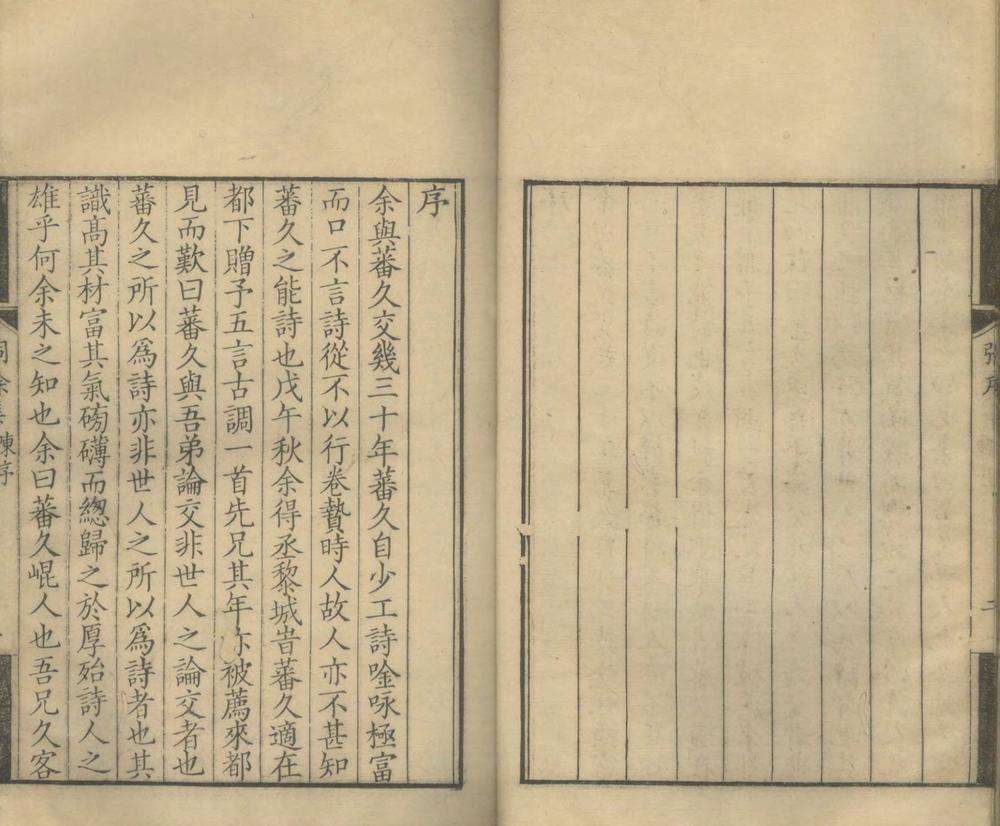 張序
二
序
余與蕃久交幾三十年蕃久自少工詩唫咏極富
而口不言詩從不以行卷贄時人故人亦不甚知
蕃久之能詩也戊午秋余得丞黎城旹蕃久適在
都下贈予五言古調一首先兄其年亦被薦來都
見而歎曰蕃久與吾弟論交非世人之論交者也
蕃久之所以爲詩亦非世人之所以爲詩者也其
識髙其材富其氣磅礴而緫歸之於厚殆詩人之
雄乎何余未之知也余曰蕃久崐人也吾兄久客
陳序